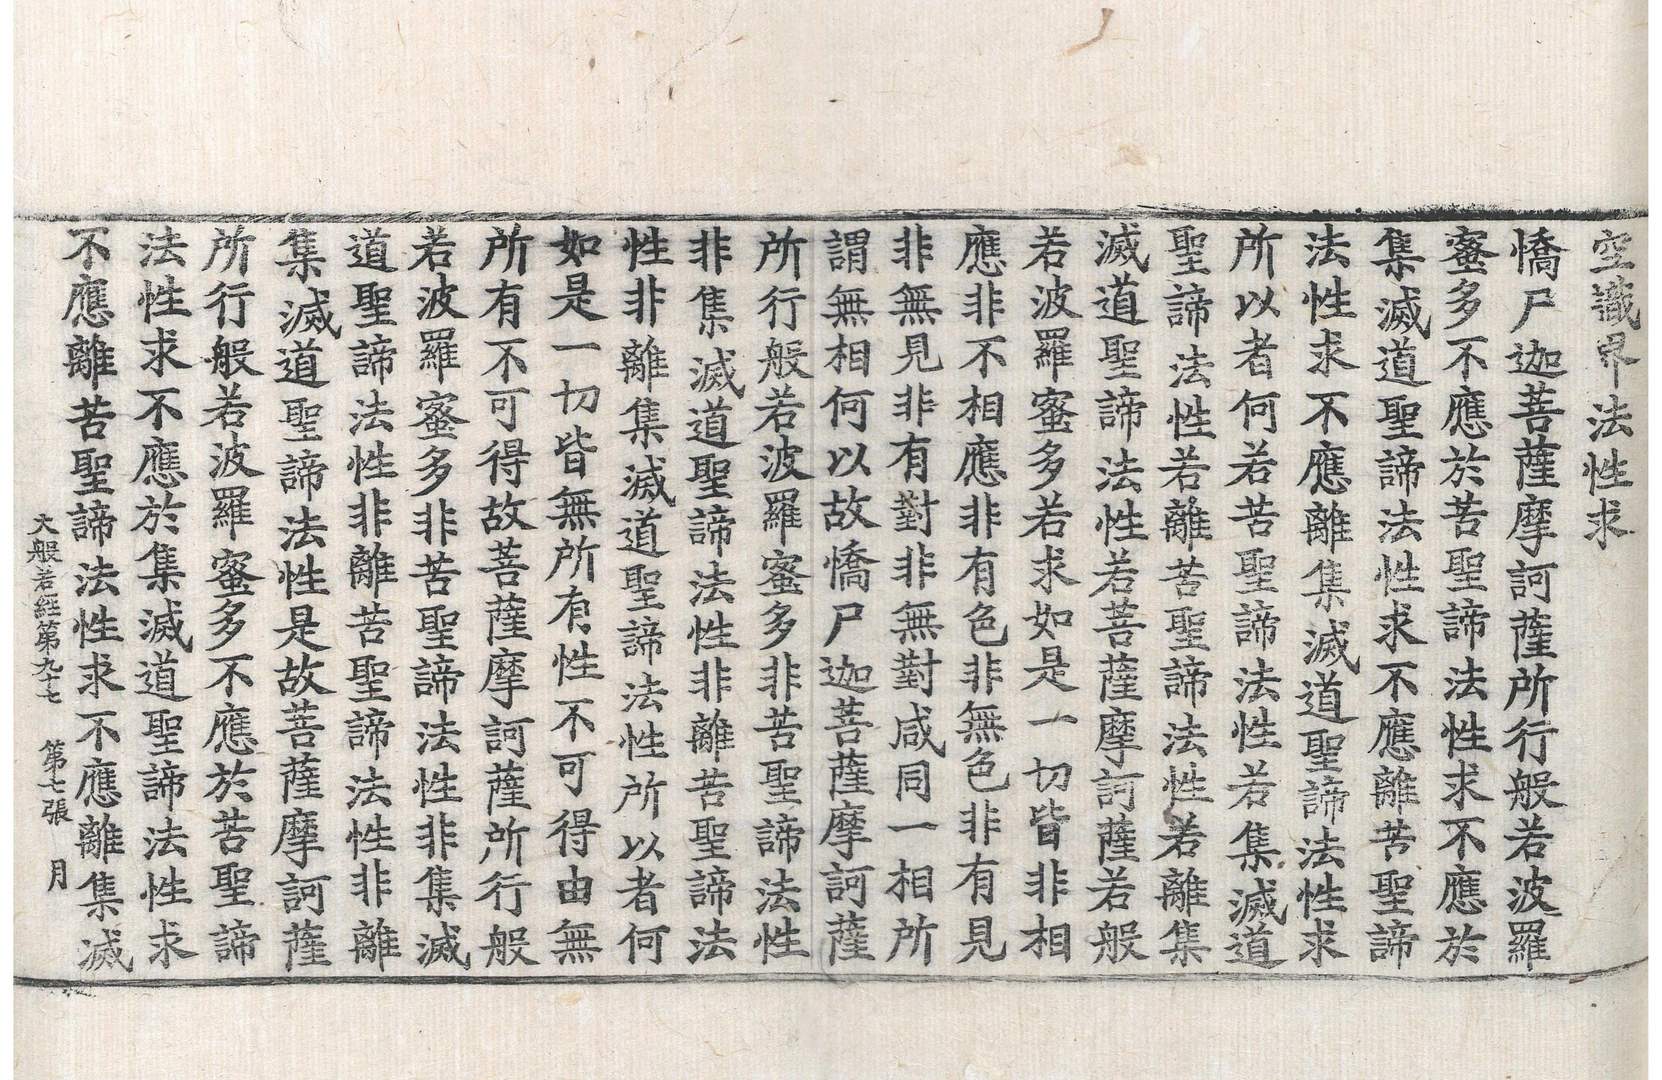 空識界法性求
憍尸迦菩薩摩訶薩所行般若波羅
蜜多不應於苦聖諦法性求不應於
集滅道聖諦法性求不應離苦聖諦
法性求不應離集滅道聖諦法性求
所以者何若苦聖諦法性若集滅道
聖諦法性若離苦聖諦法性若離集
滅道聖諦法性若菩薩摩訶薩若般
若波羅蜜多若求如是一切皆非相
應非不相應非有色非無色非有見
非無見非有對非無對咸同一相所
謂無相何以故憍尸迦菩薩摩訶薩
所行般若波羅蜜多非苦聖諦法性
非集滅道聖諦法性非離苦聖諦法
性非離集滅道聖諦法性所以者何
如是一切皆無所有性不可得由無
所有不可得故菩薩摩訶薩所行般
若波羅蜜多非苦聖諦法性非集滅
道聖諦法性非離苦聖諦法性非離
集滅道聖諦法性是故菩薩摩訶薩
所行般若波羅蜜多不應於苦聖諦
法性求不應於集滅道聖諦法性求
不應離苦聖諦法性求不應離集滅
大般若經第九十七 第七張 月